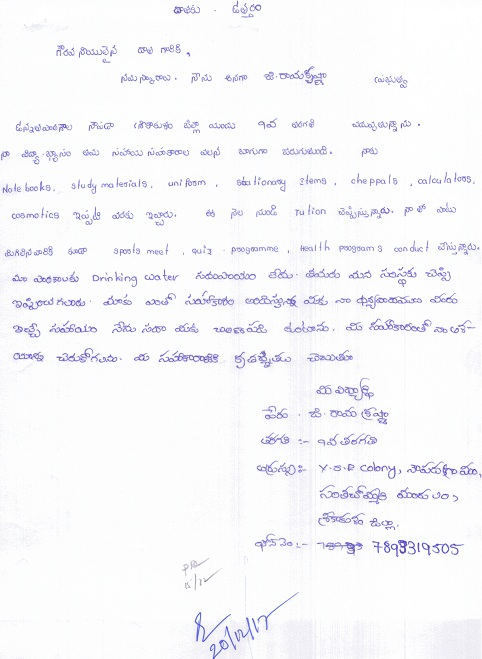 దాతకు - ఉత్తరం
గౌరవనీయులైన దాత గారికి,
నమస్కారాలు. నేను అనగా జి. రామకృష్ణా ప్రభుత్వ
ఉన్నత పాఠశాల నౌపడా శ్రీకాకుళం జిల్లా యందు 9వ తరగతి చదువుతున్నాను.
నా విద్యా భ్యాసం తమ సహాయ సహకారాల వలన బాగుగా జరుగుతుంది. నాకు
Note books, study materials, uniform, stationary items, cheppals, calculators,
cosmotics ఇప్పటి వరకు ఇచ్చారు. ఈ నెల నుండి Tution చెప్పిస్తున్నారు. నాతో పాటు
మిగిలిన వారికి కూడా sports meet, quiz programme, Health programs conduct చేస్తున్నారు.
మా పాఠశాలకు Drinking water సదుపాయం లేదు. తమరు మన సంస్థకు చెప్పి
ఇప్పించగలరు. మాకు ఎంతో సహకారం అందిస్తున్న మీకు నా ధన్యవాదములు మీరు
ఇచ్చే సహాయం నేను సదా మీకు ఉంటాను. మీ సహకారంతో నా ఆశ-
యాలు చేరుకోగలను. మీ సహకారానికి కృతజ్ఞతలు తెలుపుతూ
మీ విద్యార్థి
పేరు - జి. రామ కృష్ణా
తరగతి :- 9వ తరగతి
అడ్రస్సు:- Y.S.R colony,
సంతబొమ్మాళి మండలం,
శ్రీకాకుళం జిల్లా.
ఫోన్ నెం:- 7893319505
20/12/17